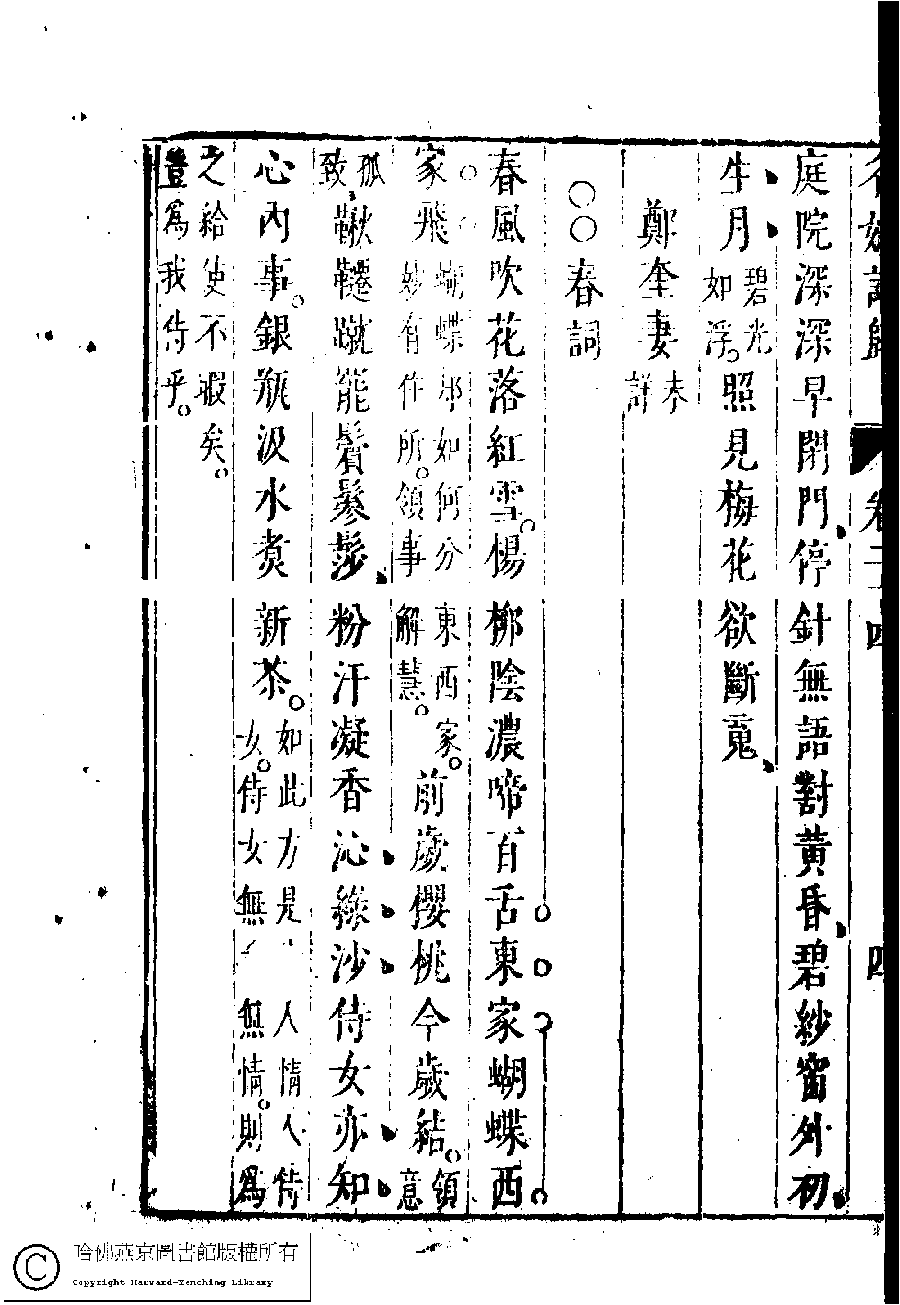 名媛詩歸 卷二十四 四
庭院深深早閉門停針無語對黃昏碧紗窗外初
生月碧光如浮。照見梅花欲斷䰟
鄭奎妻未詳
○○春詞
春風吹花落紅雪。楊柳陰濃啼百舌東家蝴蝶西
家飛蝴蝶那如何分東西家。妙有作所。領事解慧。前歲櫻桃今歲結。領意
孤致鞦韆蹴罷鬢鬖髿粉汗凝香沁綠紗侍女亦知
心內事。銀瓶汲水煮新茶。如此方是人情人侍女。侍女無無情。則爲
之給使不暇矣。豈爲我侍乎。
哈佛燕京圖書館版權所有
Copyright Harvard-Yenching Library